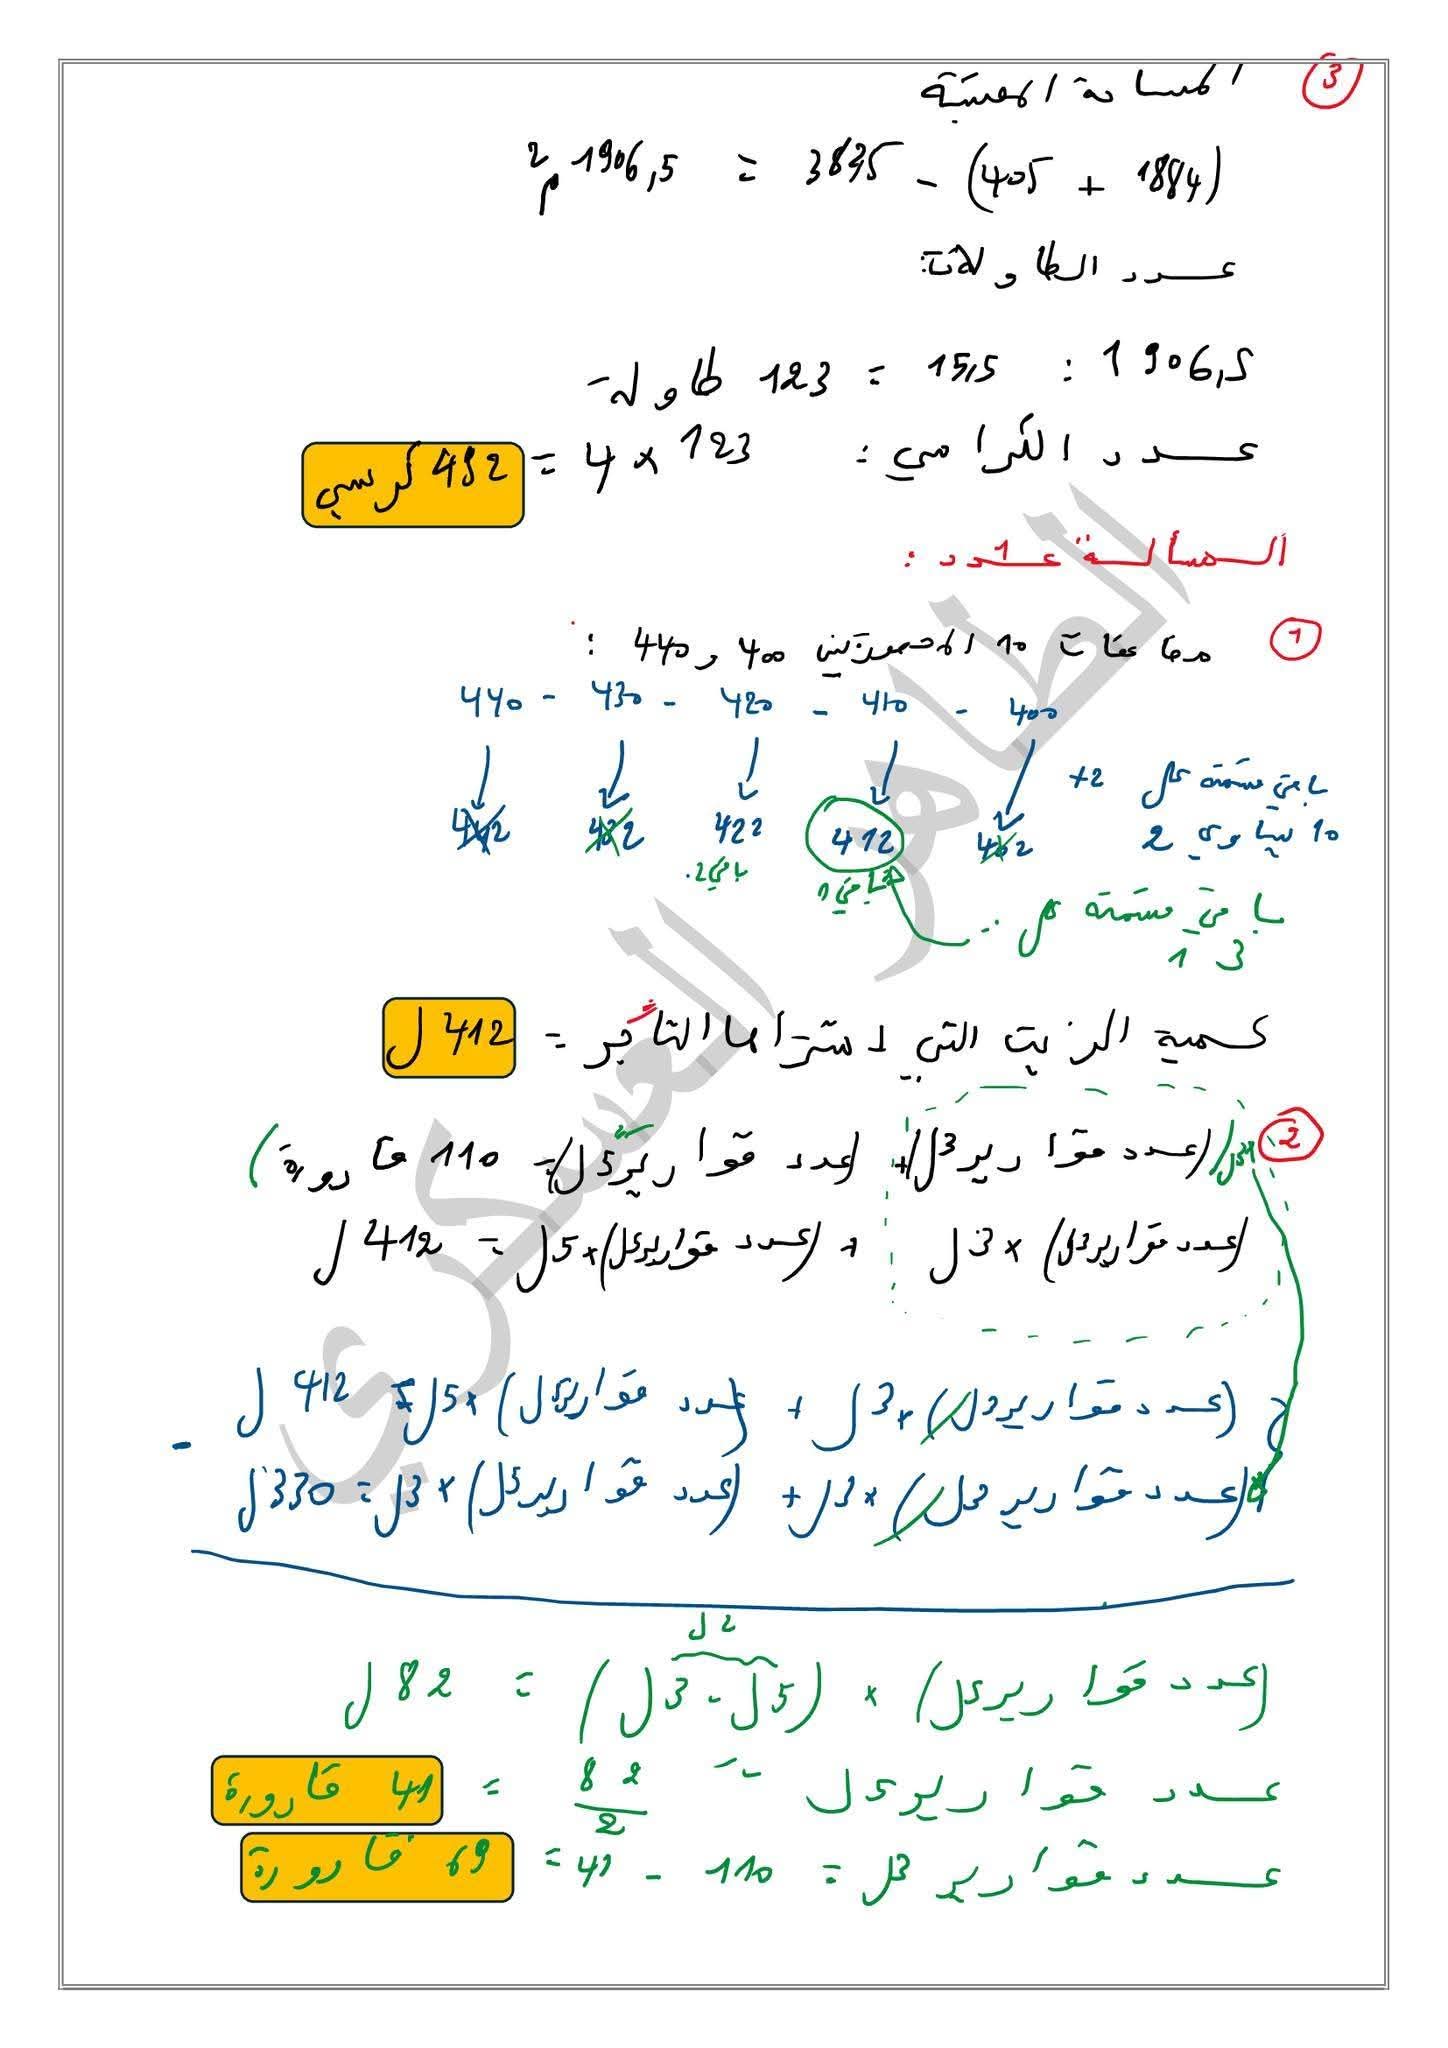 ③ المساحة المعشبة
(1884 + 405) - 3835 = 1906,5 م²
عدد الطاولات:
1906,5 : 15,5 = 123 طاولة
عدد الكراسي: 123 × 4 = 492 كرسي
المسألة عدد 1 :
① مضاعفات 10 المحصورة بين 400 و 440 :
400 - 410 - 420 - 430 - 440
باقي قسمته على 10 يساوي 2 +2
402 412 422 432 442
باقي 1 باقي 2
باقي قسمته على 3 1
كمية الزيت التي اشتراها التاجر = 412 ل
② (عدد قوارير 3ل) + (عدد قوارير 5ل) = 110 قارورة)
(عدد قوارير 3ل) × 3ل + (عدد قوارير 5ل) × 5ل = 412 ل
(عدد قوارير 3ل) × 3ل + (عدد قوارير 5ل) × 5ل = 412 ل
-
(عدد قوارير 3ل) × 3ل + (عدد قوارير 5ل) × 3ل = 330 ل
2ل
(عدد قوارير 5ل) × (5ل - 3ل) = 82 ل
عدد قوارير 5ل = 82/2 = 41 قارورة
عدد قوارير 3ل = 110 - 41 = 69 قارورة
الطاهر العسكري